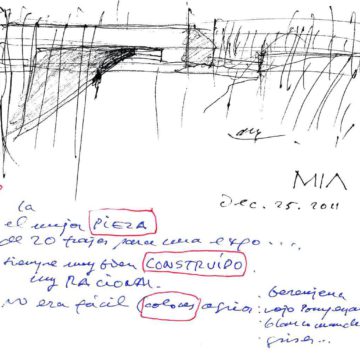 MIA
Dec. 25. 2011
la
el mejor PIEZA
de 20 trajes para una expo....
siempre muy bien CONSTRUÍDO.
muy RACIONAL.
no era fácil colores
. berenjena
. rojo Pompeya
. blanco
. grises...